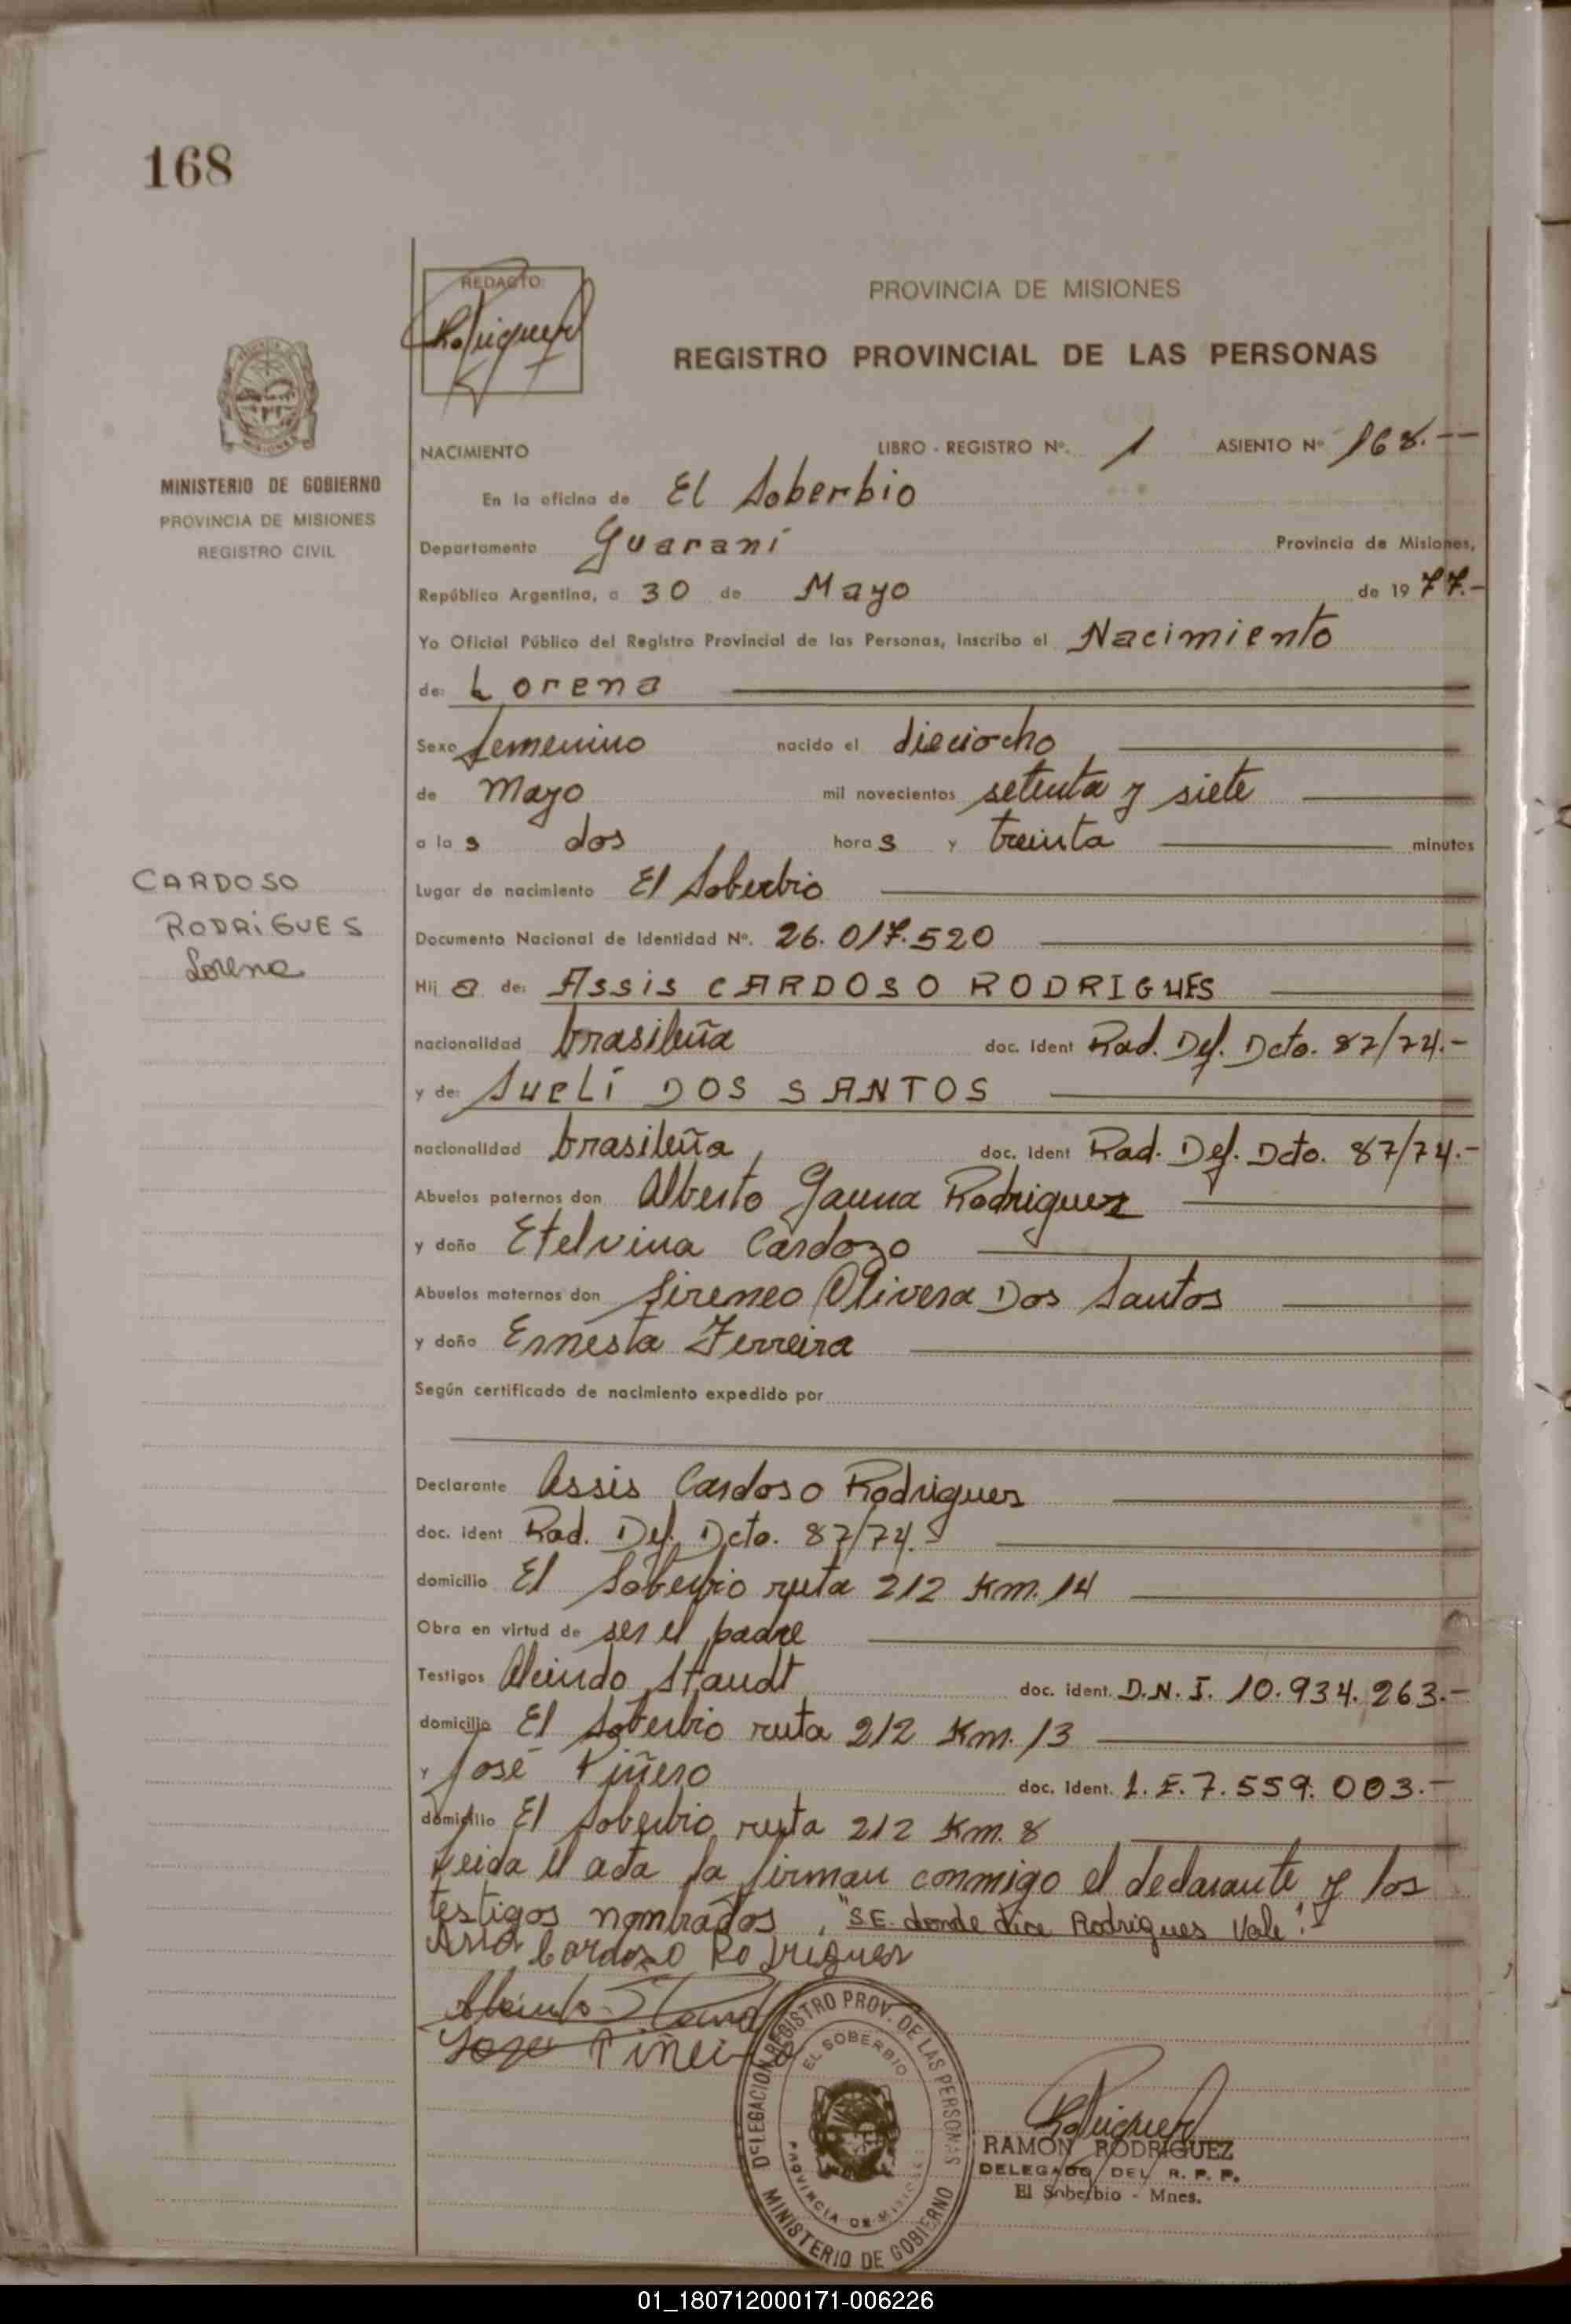 168
REDACTO
PROVINCIA DE MISIONES
REGISTRO PROVINCIAL DE LAS PERSONAS
MINISTERIO DE GOBIERNO
PROVINCIA DE MISIONES
REGISTRO CIVIL
NACIMIENTO LIBRO - REGISTRO Nº. 1 ASIENTO Nº 168.--
En la oficina de El Soberbio
Departamento Guaraní Provincia de Misiones,
República Argentina, a 30 de Mayo de 1977.-
Yo Oficial Público del Registro Provincial de las Personas, inscribo el Nacimiento
de: Lorena
Sexo femenino nacido el dieciocho
de Mayo mil novecientos setenta y siete
a las dos horas y treinta minutos
CARDOSO
RODRIGUES
Lorena
Lugar de nacimiento El Soberbio
Documento Nacional de Identidad Nº. 26.017.520
Hija de: Assis CARDOSO RODRIGUES
nacionalidad brasileña doc. Ident Rad. Def. Dcto. 87/74.-
y de: Suelí DOS SANTOS
nacionalidad brasileña doc. Ident Rad. Def. Dcto. 87/74.-
Abuelos paternos don Alberto Gauna Rodriguez
y doña Etelvina Cardozo
Abuelos maternos don Sireneo Olivera Dos Santos
y doña Ernesta Ferreira
Según certificado de nacimiento expedido por
Declarante Assis Cardoso Rodrigues
doc. ident Rad. Def. Dcto. 87/74.-
domicilio El Soberbio ruta 212 Km. 14
Obra en virtud de ser el padre
Testigos Alcindo Staudt doc. ident. D.N.I. 10.934.263.-
domicilio El Soberbio ruta 212 Km. 13
y José Piñero doc. ident. L.E. 7.559.003.-
domicilio El Soberbio ruta 212 Km. 8
Leida el acta la firman conmigo el declarante y los
testigos nombrados, "S.E. donde dice Rodrigues Vale".-
Assis Cardoso Rodrigues
Alcindo Staudt
Jose Piñeiro
DELEGACION REGISTRO PROV. DE LAS PERSONAS
EL SOBERBIO
PROVINCIA DE MISIONES
MINISTERIO DE GOBIERNO
RAMON RODRIGUEZ
DELEGADO DEL R. P. P.
El Soberbio - Mnes.
01_180712000171-006226